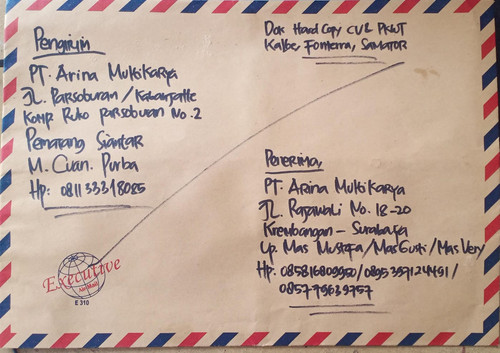 Pengirim
PT. Arina Multikarya
JL. Parsoburan / Kabanjahe
Komp Ruko parsoburan No. 2
Pematang Siantar
M. Cuan. Purba
Hp: 081133318085
Dok Hard Copy CV & PKWT
Kalbe, Fonterra, SAMATOR
Penerima,
PT. Arina Multikarya
JL. Rajawali No. 18-20
Krembangan - Surabaya
Up. Mas Mustofa / Mas Gusti / Mas Very
Hp. 085816809950 / 0895397124491 /
085779639757
Executive
Air Mail
E 310